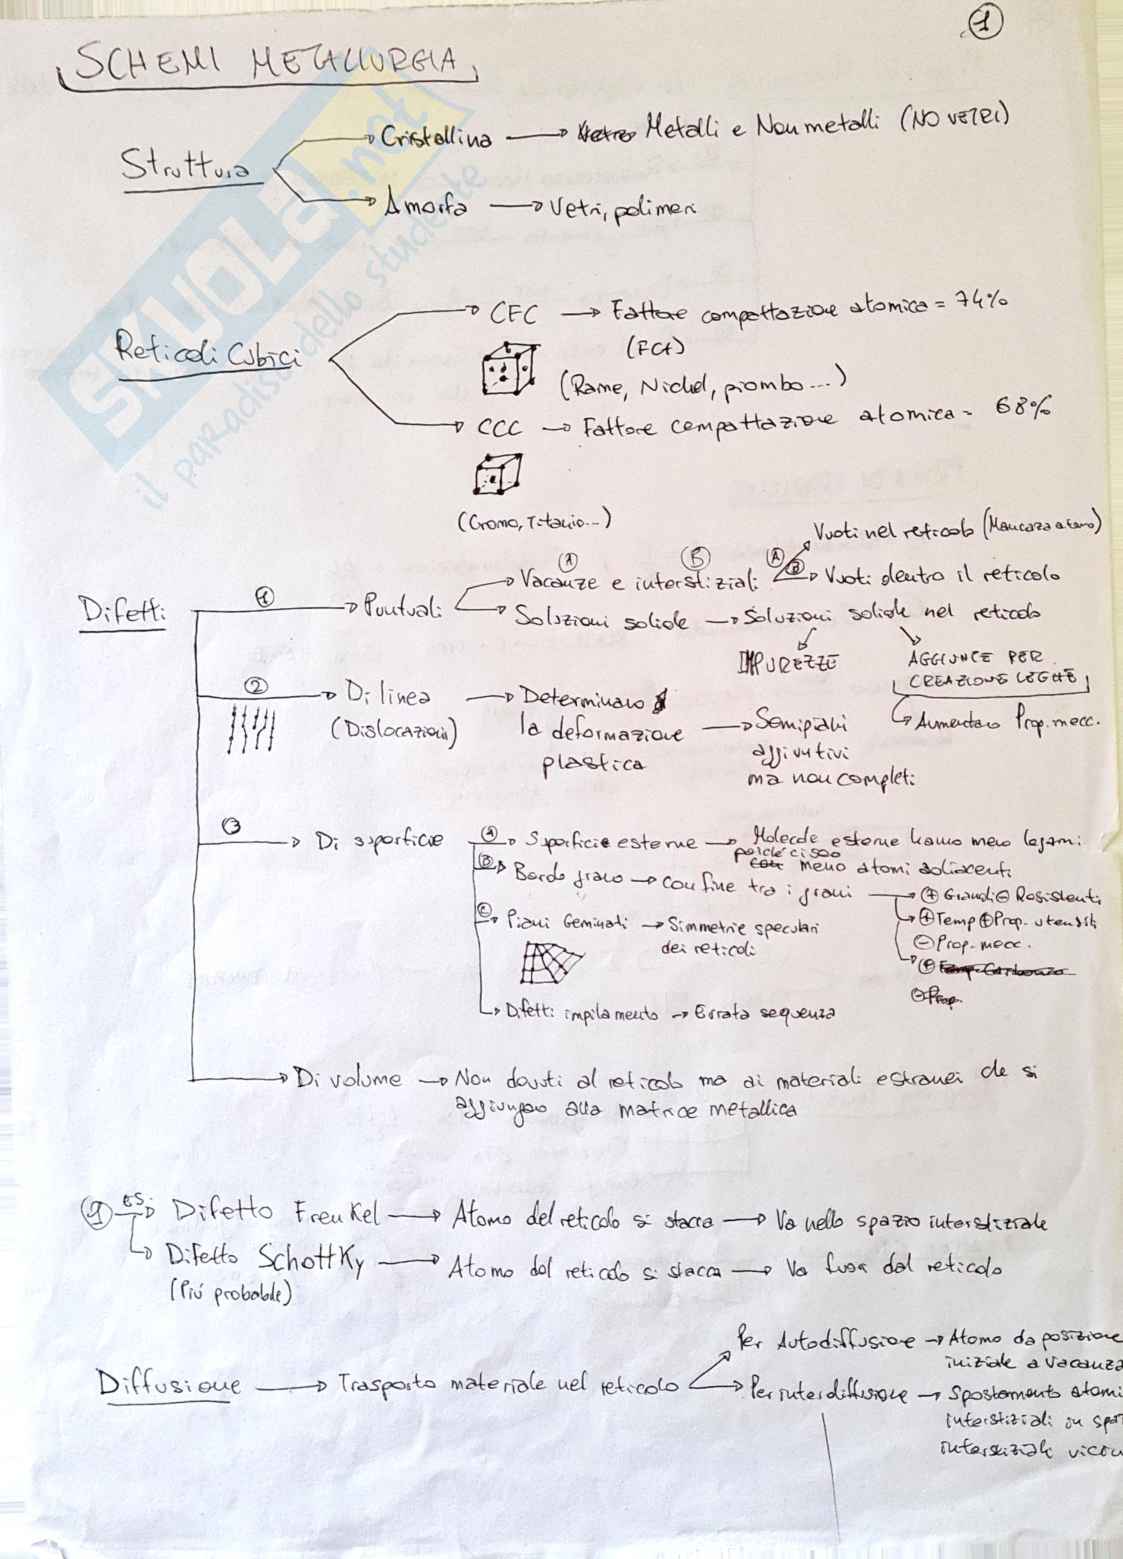 1
SCHEMI METALLURGIA
Struttura
Cristallina → Metalli e Non metalli (NO VETRI)
Amorfa → Vetri, polimeri
Reticoli Cubici
CFC → Fattore compattazione atomica = 74%
(Rame, Nichel, piombo...)
CCC → Fattore compattazione atomica = 68%
(Cromo, Titanio...)
Difetti
1 → Puntuali
A B
Vacanze e interstiziali
A Vuoti nel reticolo (Mancanza atomo)
B → Vuoti dentro il reticolo
Soluzioni solide → Soluzioni solide nel reticolo
IMPUREZZE
AGGIUNCE PER
CREAZIONE LEGHE
Aumentano Prop. mecc.
2 → Di linea
(Dislocazioni)
Determinano
la deformazione
plastica
→ Semipiani
aggiuntivi
ma non completi
3 → Di superficie
A → Superficie esterne → Molecole esterne hanno meno legami
poiché ci sono
meno atomi adiacenti
B → Bordo grano → confine tra i grani
+ Grandi - Resistenti
+ Temp + Prop. utensili
- Prop. mecc.
+
- Prop.
C → Piani Geminati → Simmetrie speculari
dei reticoli
Difetti impilamento → Errata sequenza
Di volume → Non dovuti al reticolo ma ai materiali estranei che si
aggiungono alla matrice metallica
1 ES. → Difetto Frenkel → Atomo del reticolo si stacca → Va nello spazio interstiziale
Difetto Schottky → Atomo dal reticolo si stacca → Va fuori dal reticolo
(Più probabile)
Diffusione → Trasporto materiale nel reticolo
Per Autodiffusione → Atomo da posizione
iniziale a vacanza
Per interdiffusione → Spostamento atomi
interstiziali in
interstiziale
SKUOLA.net
il paradiso dello studente